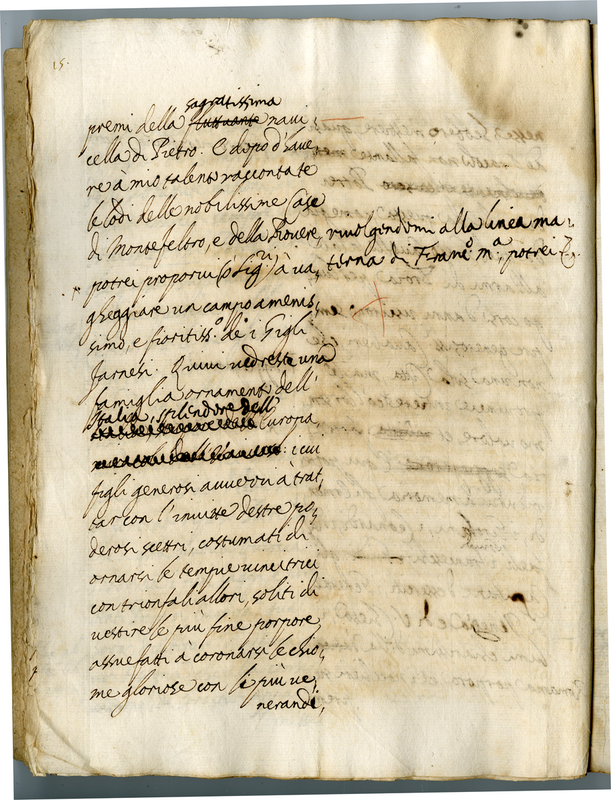 15.
sagratissima
premi della fluttuante navi,
cella di Pietro. E dopo d'have,
re à mio talento raccontate
le lodi delle nobilissime Case
di Montefeltro, e della Rovere, rivolgendomi alla linea ma,
terna di Franc.º m.ª potrei
potrei proporvi Sig.ri à va,
gheggiare un campo amenis,
simo, e fioritiss.º de i Gigli
Farnesi. Quivi vedreste una
famiglia ornamento dell'
Italia, splendore dell'
Europa,
i cui
figli generosi avvezzi à trat,
tar con l'invitte destre po,
derosi scettri, costumati di
ornarsi le tempie vincitrici
con trionfali allori, soliti di
vestire le più fine porpore,
assuefatti à coronarsi le chio,
me gloriose con li più ve,
nerandi,